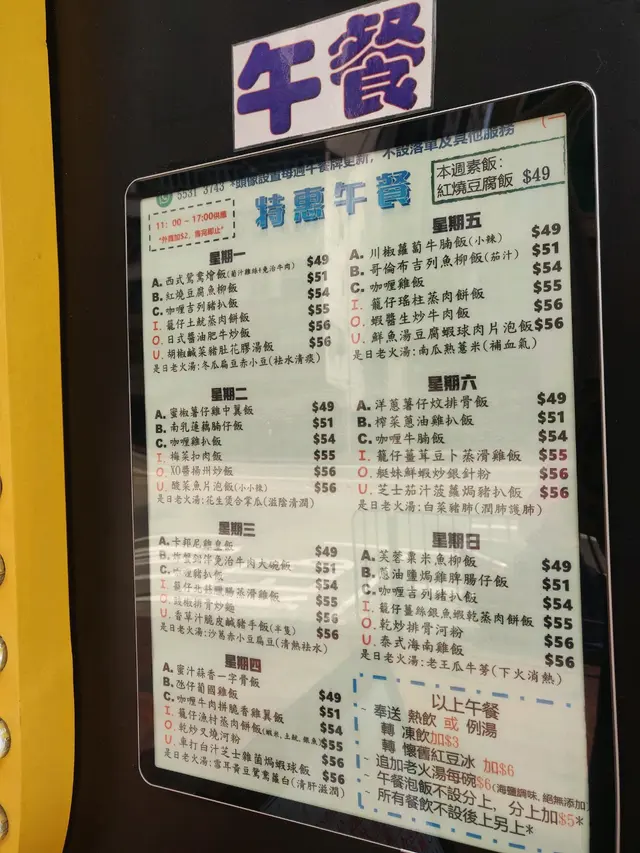 午餐
5531 3743 *頭像設置每週午餐牌更新，不設落單及其他服務
特惠午餐
11：00－17:00供應
*外賣加$2，售完即止*
本週素飯：
紅燒豆腐飯 $49
星期一
A. 西式鴛鴦燴飯(茄汁雞絲+免治牛肉) $49
B. 紅燒豆腐魚柳飯 $51
C. 咖喱吉列豬扒飯 $54
I. 籠仔土魷蒸肉餅飯 $55
O. 日式醬油肥牛炒飯 $56
U. 胡椒鹹菜豬肚花膠湯飯 $56
是日老火湯：冬瓜扁豆赤小豆(祛水清痰)
星期二
A. 蜜椒薯仔雞中翼飯 $49
B. 南乳蓮藕腩仔飯 $51
C. 咖喱雞扒飯 $54
I. 梅菜扣肉飯 $55
O. XO醬揚州炒飯 $56
U. 酸菜魚片泡飯(小小辣) $56
是日老火湯：花生煲合掌瓜(滋陰清潤)
星期三
A. 卡邦尼雞皇飯 $49
B. 免治牛肉大碗飯 $51
C. 咖喱豬扒飯 $54
I. 籠仔 臘腸蒸滑雞飯 $55
O. 豉椒排骨炒麵 $56
U. 香草汁脆皮鹹豬手飯(半隻) $56
是日老火湯：沙葛赤小豆扁豆(清熱祛水)
星期四
A. 蜜汁蒜香一字骨飯 $49
B. 氹仔葡國雞飯 $51
C. 咖喱牛肉拼脆香雞翼飯 $54
I. 籠仔漁村蒸肉餅飯(蝦米,土魷,銀魚) $55
O. 乾炒叉燒河粉 $56
U. 車打白汁芝士雜菌焗蝦球飯 $56
是日老火湯：雪耳黃豆鴛鴦蘿白(清肝滋潤)
星期五
A. 川椒蘿蔔牛腩飯(小辣) $49
B. 哥倫布吉列魚柳飯(茄汁) $51
C. 咖喱雞飯 $54
I. 籠仔瑤柱蒸肉餅飯 $55
O. 蝦醬生炒牛肉飯 $56
U. 鮮魚湯豆腐蝦球肉片泡飯 $56
是日老火湯：南瓜熟薏米(補血氣)
星期六
A. 洋蔥薯仔炆排骨飯 $49
B. 榨菜蔥油雞扒飯 $51
C. 咖喱牛腩飯 $54
I. 籠仔薑茸豆卜蒸滑雞飯 $55
O. 艇妹鮮蝦炒銀針粉 $56
U. 芝士茄汁菠蘿焗豬扒飯 $56
是日老火湯：白菜豬肺(潤肺護肺)
星期日
A. 芙蓉粟米魚柳飯 $49
B. 蔥油鹽焗雞脾腸仔飯 $51
C. 咖喱吉列豬扒飯 $54
I. 籠仔薑絲銀魚蝦乾蒸肉餅飯 $55
O. 乾炒排骨河粉 $56
U. 泰式海南雞飯 $56
是日老火湯：老王瓜牛蒡(下火消熱)
以上午餐
奉送 熱飲 或 例湯
轉 凍飲加$3
轉 懷舊紅豆冰 加$6
追加老火湯每碗$6(海鹽調味,絕無添加)
午餐泡飯不設分上，分上加$5*
所有餐飲不設後上另上*